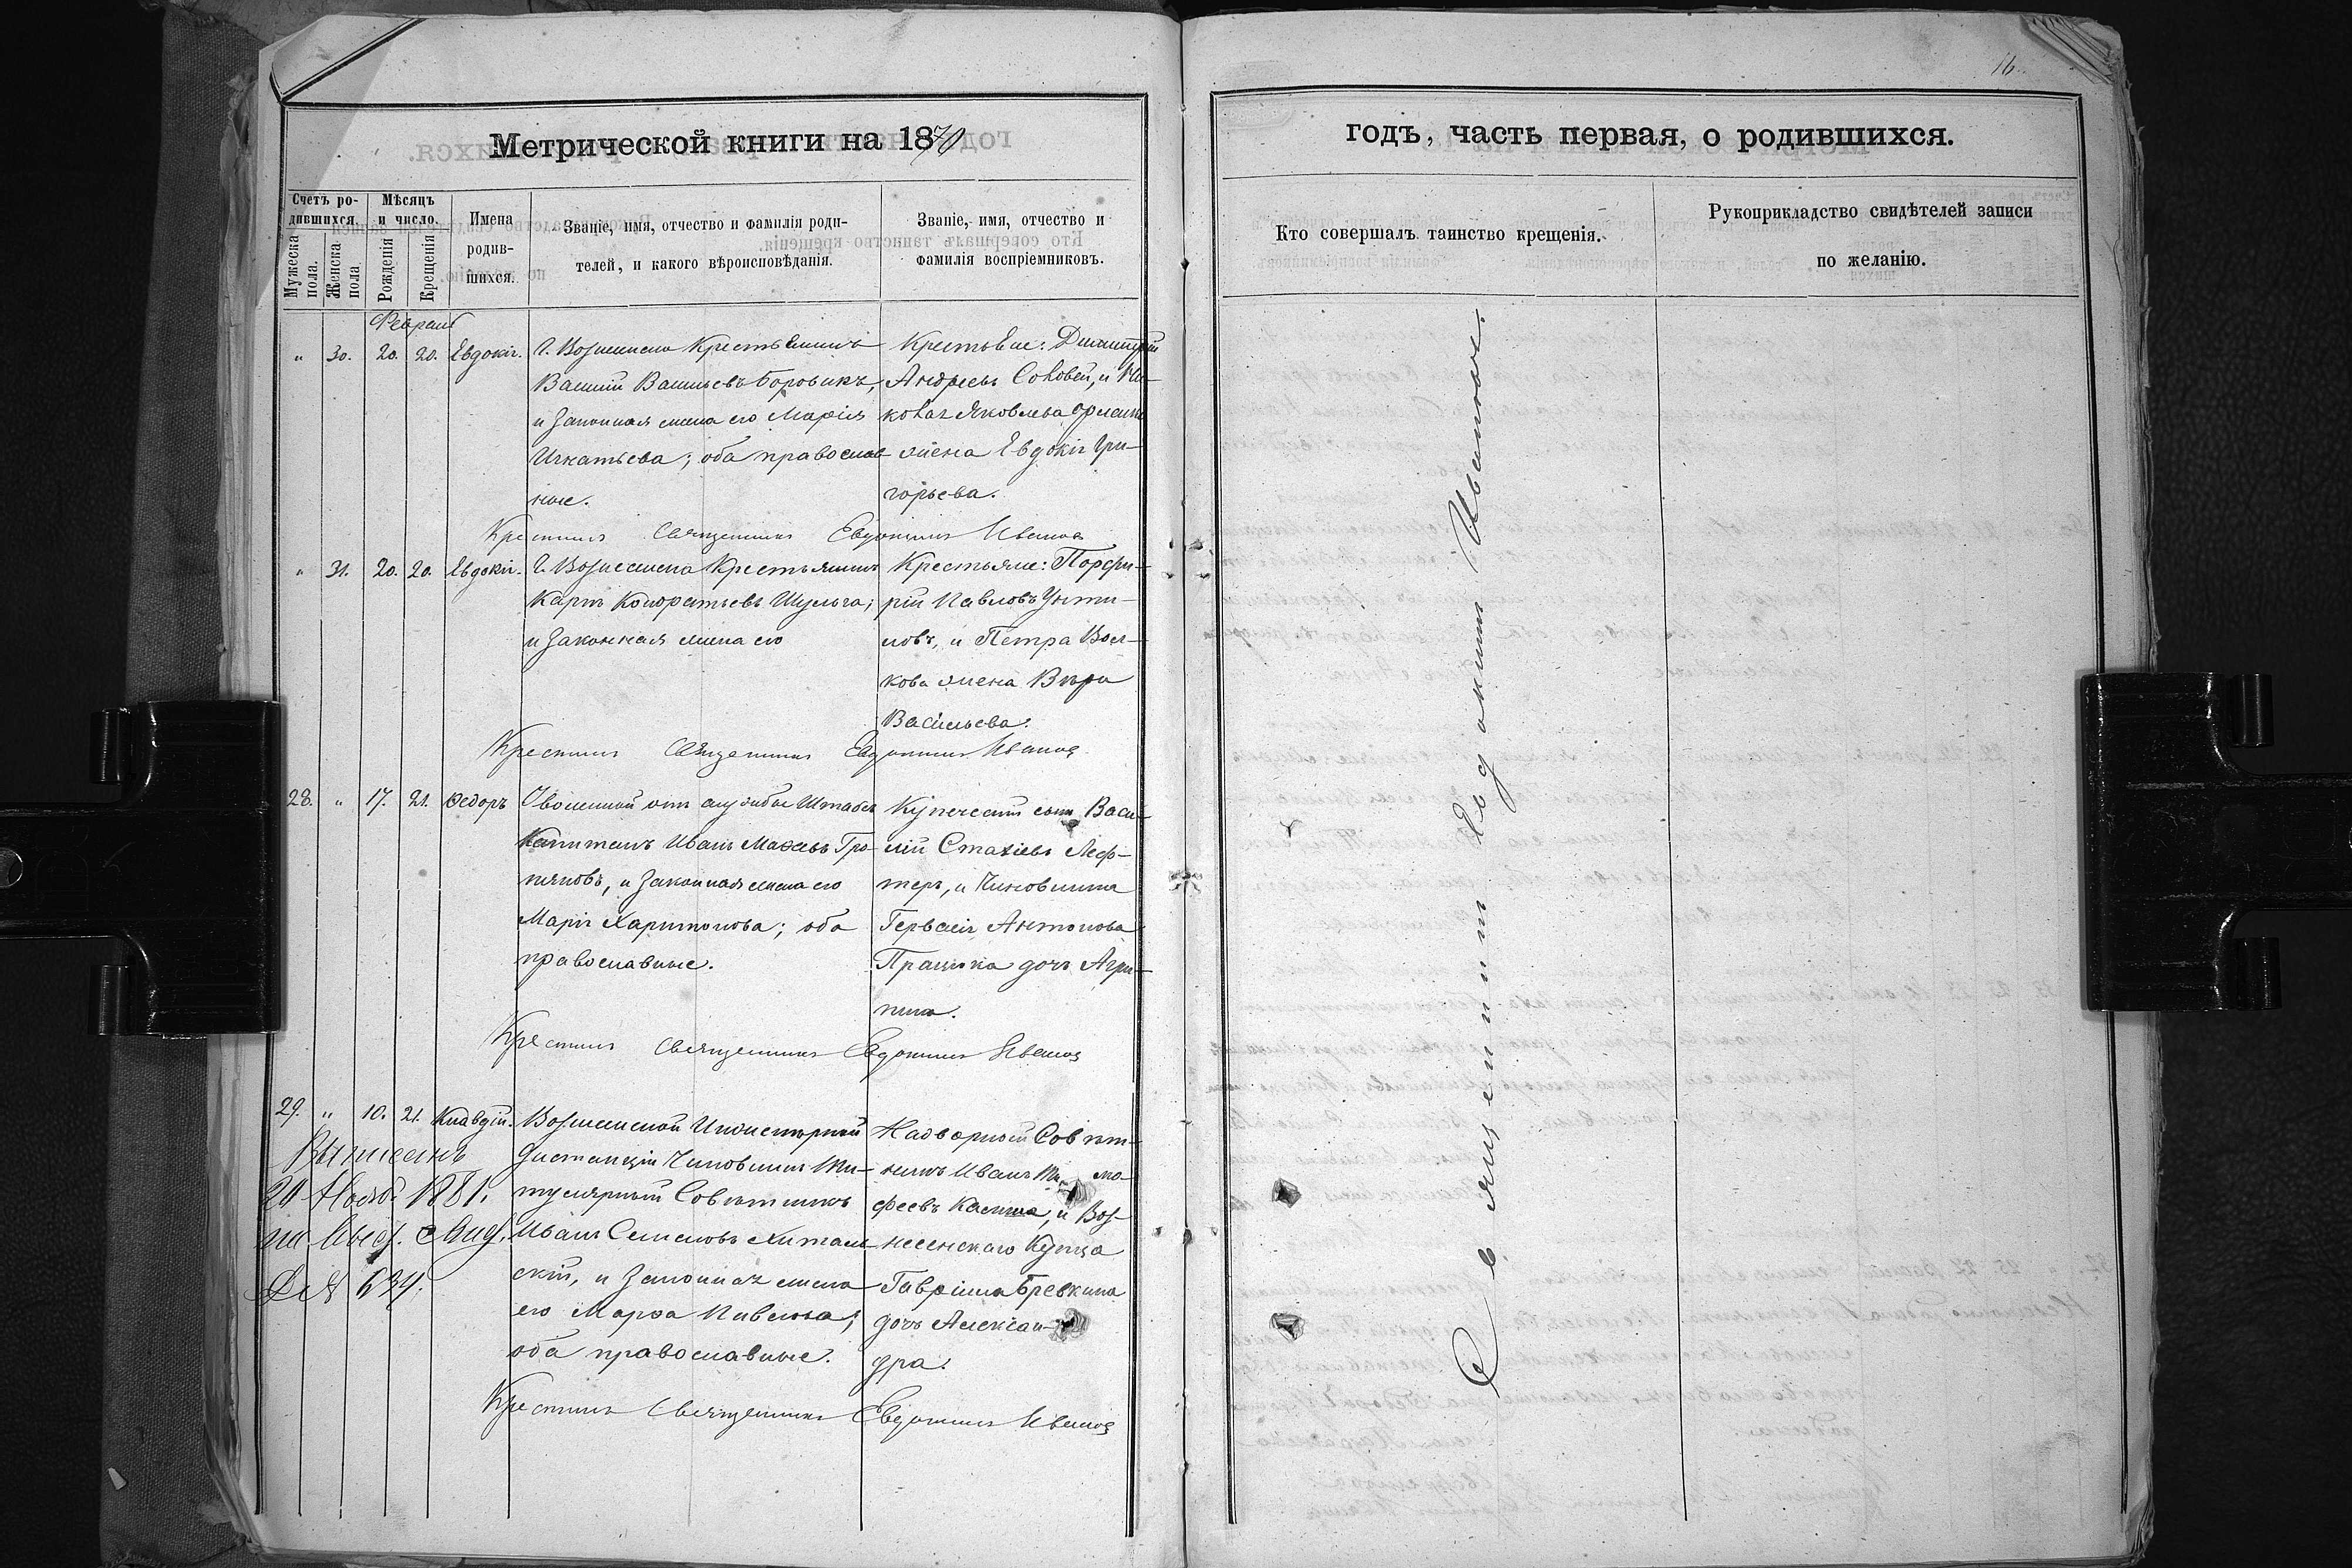 16.
Метрической книги на 1870
Счетъ ро-
дившихся.
Мужеска
пола.
Женска
пола
Мѣсяцъ
и число.
Рожденія
Крещенія
Имена
родив-
шихся.
Званіе, имя, отчество и фамилія роди-
телей, и какого вѣроисповѣданія.
Званіе, имя, отчество и
фамилія воспріемниковъ.
Февраль
„ 30. 20. 20. Евдокія.
Г. Вознесенска Крестьянинъ
Василій Васильевъ Боровикъ,
и законная жена его Марія
Игнатьева; оба православ
ные.
Крестьяне: Димитрій
Андреевъ Соловей, и Ни-
колая Яковлева
жена Евдокія Гри-
горьева.
Крестилъ Священникъ Евдокимъ Ивановъ
„ 31. 20. 20. Евдокія.
Г. Вознесенска Крестьянинъ
Карпъ Кондратьевъ Шульга;
и законная жена его
Крестьяне: Порфи-
рій Павловъ
ловъ, и Петра Вол-
кова жена Вѣра
Васильева.
Крестилъ Священникъ Евдокимъ Ивановъ
28. „ 17. 21. Ѳедоръ
Уволенный отъ службы Штабсъ
Капитанъ Иванъ Гро-
, и законная жена его
Марія Харитонова; оба
православные.
Купеческій сынъ Васи-
лій Стахіевъ Леф-
теръ, и Чиновника
Гервасія Антонова
дочь Агри-
пина.
Крестилъ Священникъ Евдокимъ Ивановъ
29. „ 10. 21. Клавдій.
Выписанъ
24 Нояб. 1881.
за № 634.
Вознесенской Инженерной
дистанціи Чиновникъ Ти-
тулярный Совѣтникъ
Иванъ Семеновъ
скій, и законная жена
его Марѳа Павлова;
оба православные.
Надворный Совѣт-
никъ Иванъ Тимо-
феевъ , и Воз-
несенскаго Купца
Гавріила Бревкина
дочь Алексан-
дра.
Крестилъ Священникъ Евдокимъ Ивановъ
годъ, часть первая, о родившихся.
Кто совершалъ таинство крещенія.
Рукоприкладство свидѣтелей записи
по желанію.
Священникъ Евдокимъ Ивановъ.